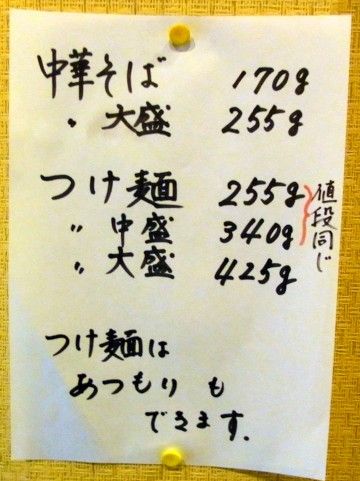 中華そば 170g
〃 大盛 255g
つけ麺 255g
〃 中盛 340g
〃 大盛 425g
値段同じ
つけ麺は
あつもりも
できます.